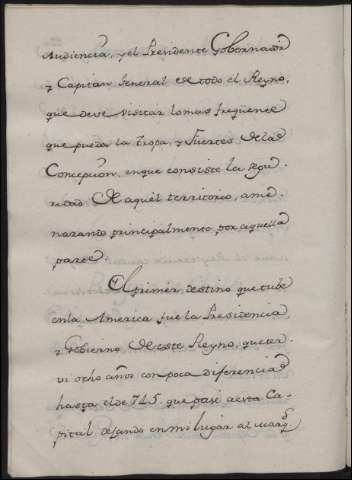 Audiencia, y el Presidente Gobernador
y Capitan General de todo el Reyno,
que deve visitar lo mas freqüente
que pueda la Tropa, y Fuertes de la
Concepcion, en que consiste la segu-
ridad de aquel territorio, ame-
nazando principalmente por aquella
parte
El primer destino que tube
en la America fue la Presidencia
y Gobierno de este Reyno, que ser-
vi ocho años con poca diferencia
hasta el de 745 que pasé a esta Ca-
pital dejando en mi lugar al Marqs